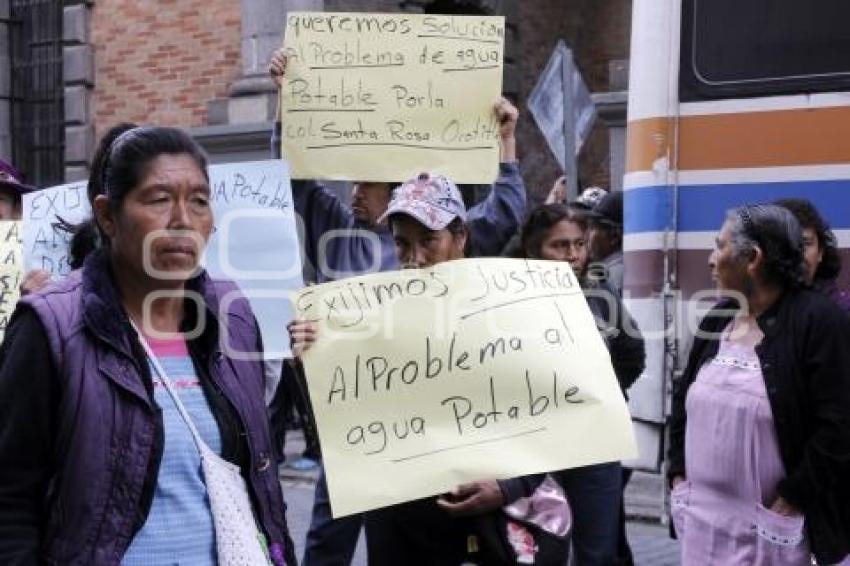 queremos Solución
Al Problema de agua
Potable Porla
col Santa Rosa Ocotitl
Potable
Exijimos Justicia
Al Problema al
agua Potable